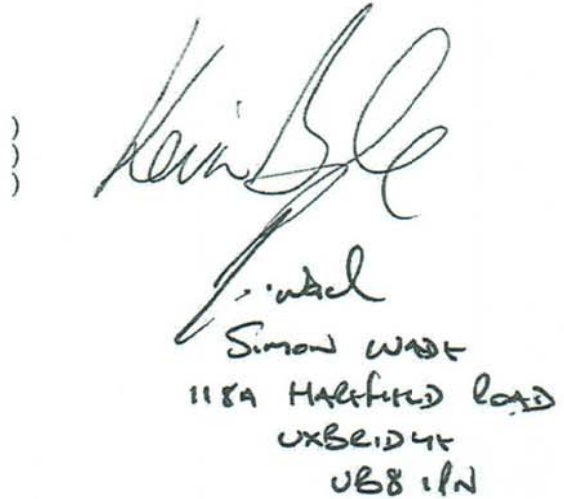 )
)
)
Kevin
Simon WADE
118A HAREFIELD ROAD
UXBRIDGE
UB8 1PN